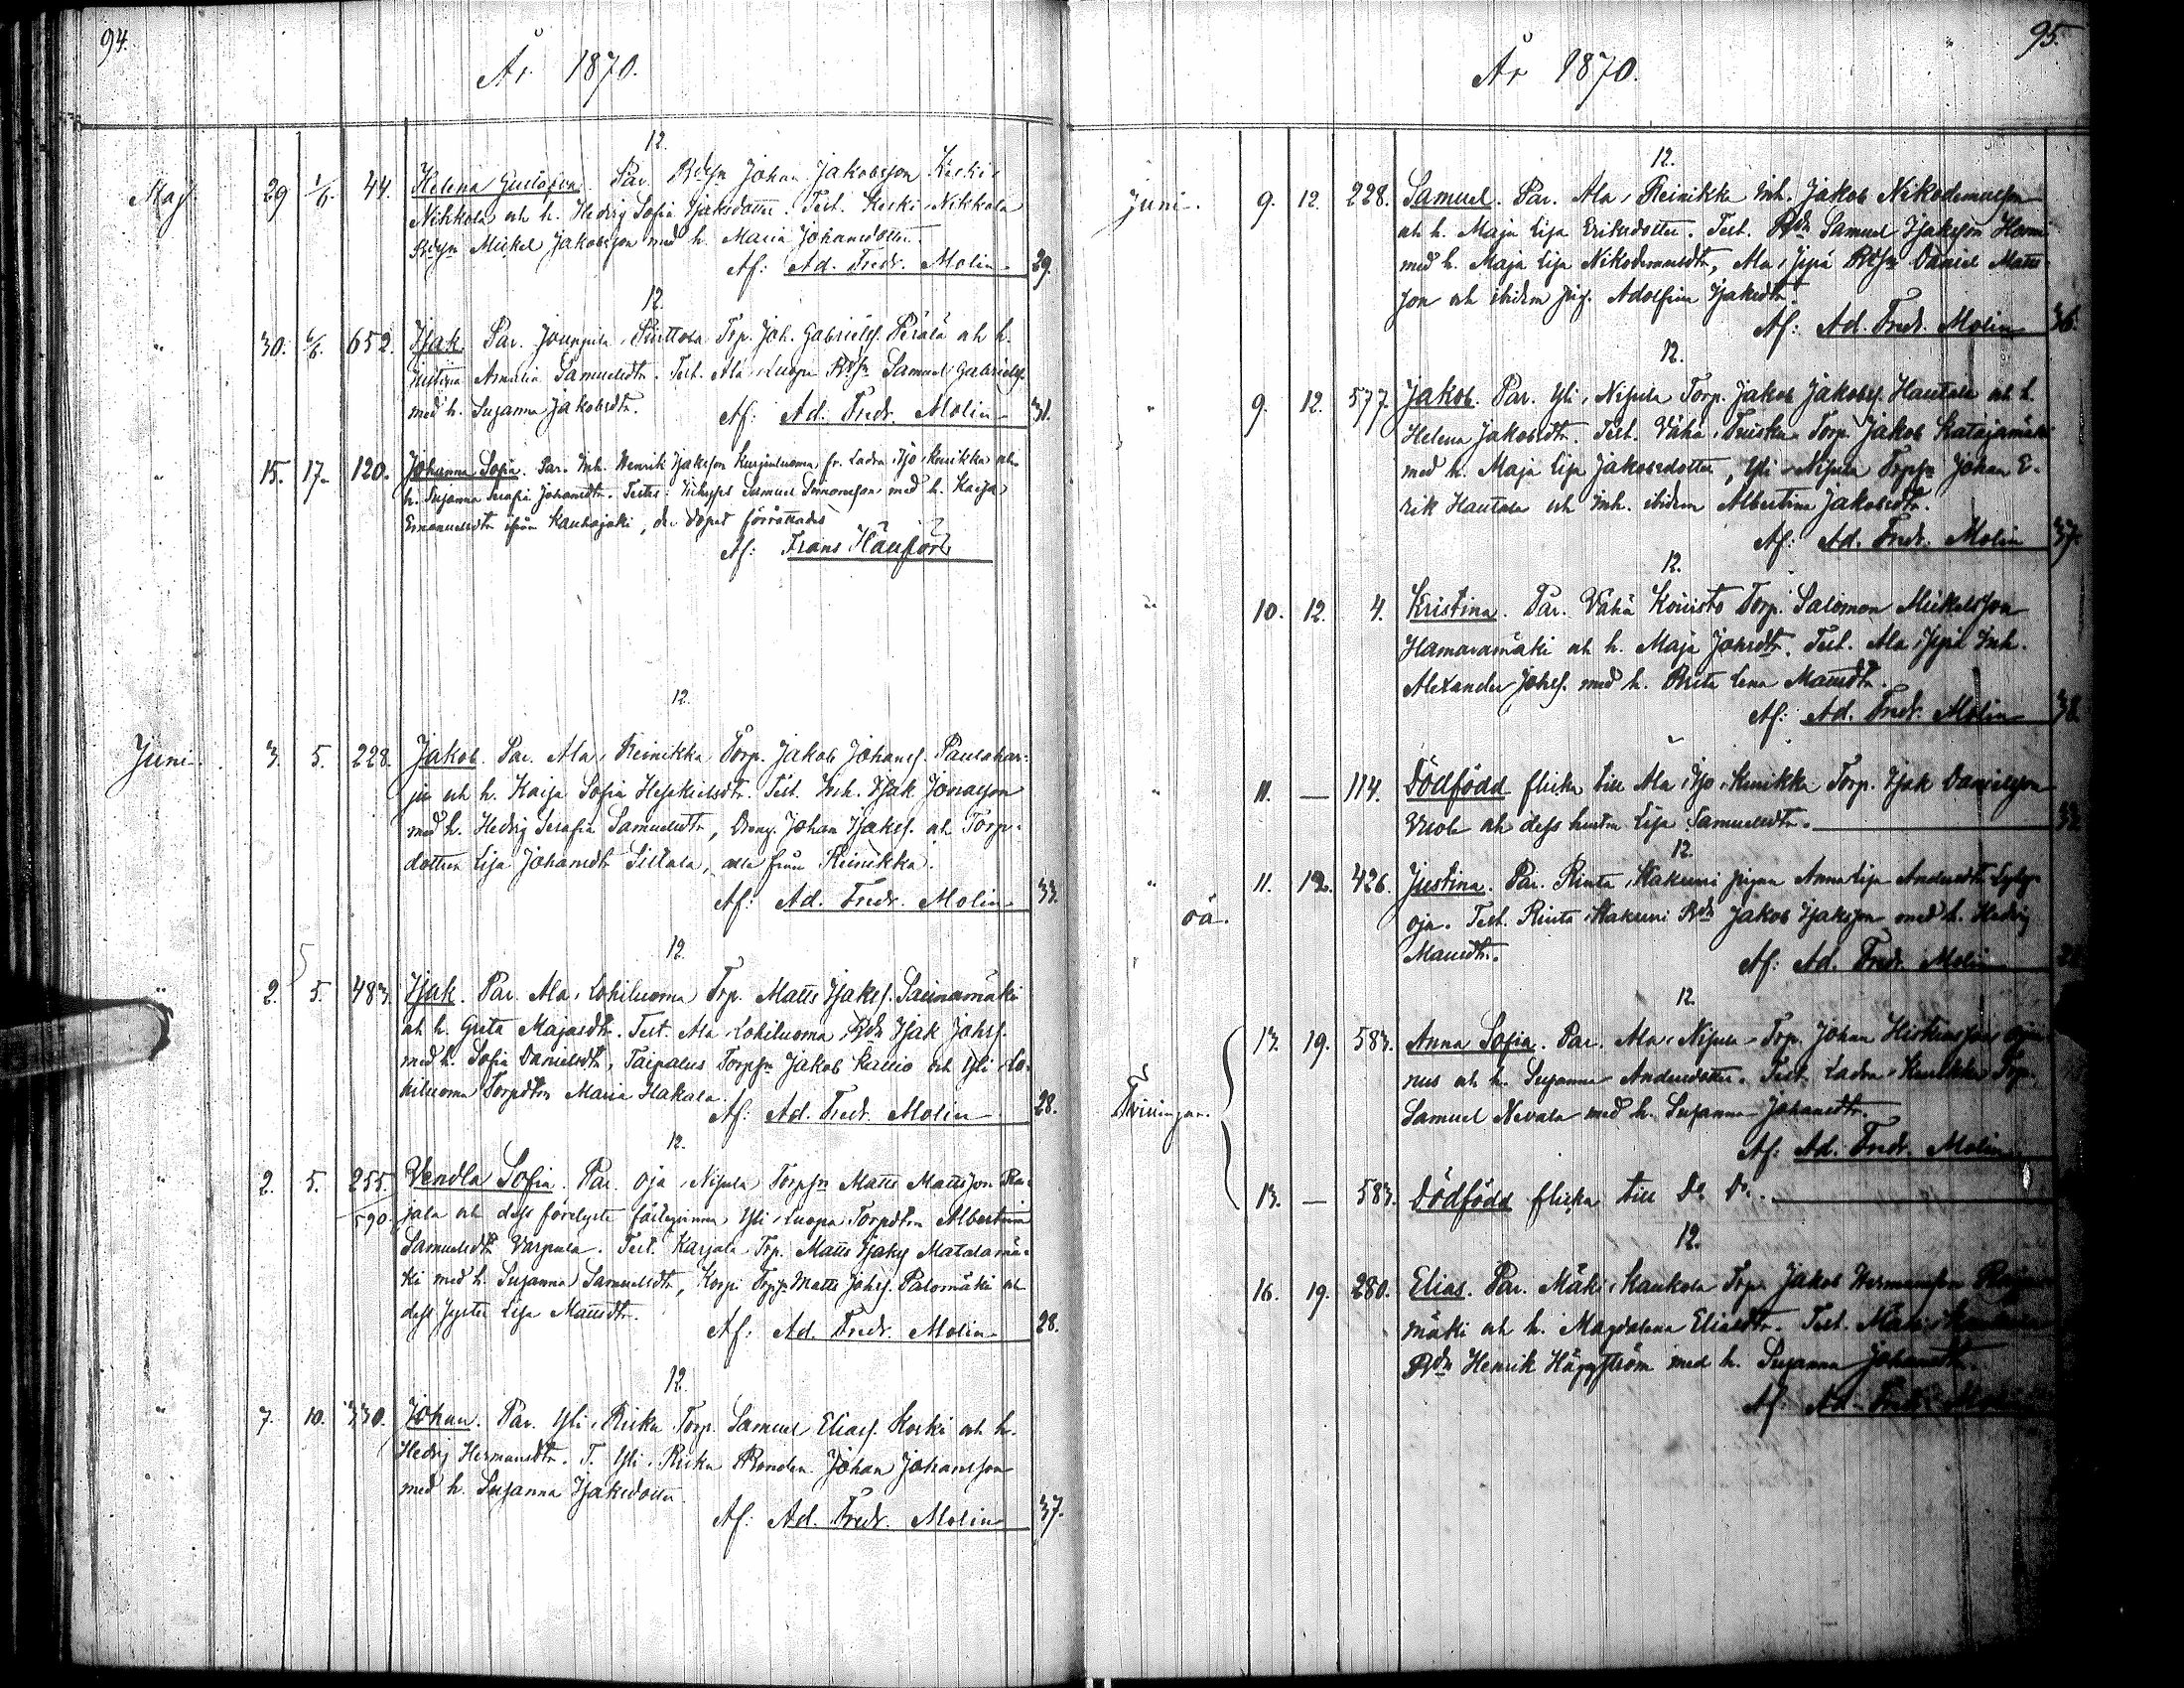 94.
År 1870.
12.
Maj 29 1/6. 44. Helena Gustafva. Par. Bdsn Johan Jakobsson Keski-
Nikkola och h. Hedvig Sofia Isaksdotter. Test. Keski-Nikkola
Bdsn Mickel Jakobsson med h. Maria Johansdotter.
Af: Ad. Fredr. Molin 29.
12.
" 30. 6/6. 652. Isak. Par. Jouppila, Trp. Joh. Gabrielss. Perälä och h.
Justina Amalia Samuelsdtr. Test. Ala-Luopa Samuel Gabrielss.
med h. Susanna Jakobsdtr. Af: Ad. Fredr. Molin 31.
" 15. 17. 120. Johanna Sofia. Par. Inh. Henrik Isaksson fr. Ladon Iso-Knuikka och
h. Susanna Serafia Johansdtr. Testes: Samuel Simonsson med h. Kaisa
Emanuelsdtr ifrån Kauhajoki, der dopet förrättades
Af: Frans Hänfors
12.
Juni 3. 5. 228. Jakob. Par. Ala-Reinikka Torp. Jakob Johanss. Paulahar-
ju och h. Kaisa Sofia Hesekielsdtr. Test. Inh. Isak Jonasson
med h. Hedvig Serafia Samuelsdtr, Dreng. Johan Isakss. och Torp-
dottren Lisa Johansdtr Sillala, alla från Reinikka.
Af: Ad. Fredr. Molin 33.
12.
" 2. 5. 483. Isak. Par. Ala-Lohiluoma Trp. Matts Isakss. Saunamäki
och h. Greta Majasdtr. Test. Ala-Lohiluoma Bdn Isak Johss.
med h. Sofia Danielsdtr, Taipalus Torpsn Jakob Kallio och Yli-Lo-
hiluoma Torpdtrn Maria Hakala.
Af: Ad. Fredr. Molin 28.
12.
" 2. 5. 255. Vendla Sofia. Par. Oja-Nisula Torpsn Matts Mattsson Ra-
590. jala och dess förelyste fästeqvinna, Yli-Luopa Torpdtrn Albertina
Samuelsdtr Varpula. Test. Karjala Trp. Matts Isakss Matalamä-
ki med h. Susanna Samuelsdtr, Korpi Torpsn Matts Johss. Palomäki och
dess syster Lisa Mattsdtr.
Af: Ad. Fredr. Molin 28.
12.
" 7. 10. 330. Johan. Par. Yli-Risku Torp. Samuel Eliass. Koski och h.
Hedvig Hermansdtr. T. Yli-Risku Bonden Johan Johansson
med h. Susanna Isaksdotter.
Af: Ad. Fredr. Molin 37.
95.
År 1870.
12.
Juni. 9. 12. 228. Samuel. Par. Ala-Reinikka Inh. Jakob Nikodemusson
och h. Maja Lisa Eriksdotter. Test. Bdn Samuel Isaksson
med h. Maja Lisa Nikodemusdtr, Ala-Jyrä Bdsn Daniel Matts-
son och ibidem pig. Adolfina Isaksdtr.
Af: Ad. Fredr. Molin 36.
12.
" 9. 12. 577. Jakob. Par. Yli-Nisula Torp. Jakob Jakobss. Hautala och h.
Helena Jakobsdtr. Test. Vähä- Torp. Jakob Katajamäki
med h. Maja Lisa Jakobsdotter, Yli-Nisula Torpsn Johan E-
rik Hautala och Inh. ibidem Albertina Jakobsdtr.
Af: Ad. Fredr. Molin 37.
12.
" 10. 12. 4. Kristina. Par. Vähä Koivisto Torp. Salomon Mickelsson
Hamaramäki och h. Maja Johsdtr. Test. Ala-Jyrä Inh.
Alexander Johss. med h. Brita Lena Mattsdtr.
Af: Ad. Fredr. Molin 38.
" 11. — 114. Dödfödd flicka till Ala-Iso-Knuikka Torp. Isak Danielsson
och dess hustru Lisa Samuelsdtr. 32
12.
" oä. 11. 12. 426. Justina. Par. Rinta-Hakuni pigan Anna Lisa Andersdtr
oja. Test. Rinta-Hakuni Bdn Jakob Isaksson med h. Hedvig
Mattsdtr.
Af: Ad. Fredr. Molin
12.
Tvillingar. 13. 19. 583. Anna Sofia. Par. Ala-Nisula Trp. Johan Hiskiasson
och h. Susanna Andersdotter. Test. Ladon Knuikka Trp.
Samuel Nevala med h. Susanna Johansdtr.
Af: Ad. Fredr. Molin
13. — 583. Dödfödd flicka till Do Do.
12.
16. 19. 280. Elias. Par. Mäki-Kaukola Trp. Jakob Hermansson
mäki och h. Magdalena Eliasdtr. Test. Mäki-
Bdn Henrik Häggström med h. Susanna Johansdtr.
Af: Ad. Fredr. Molin